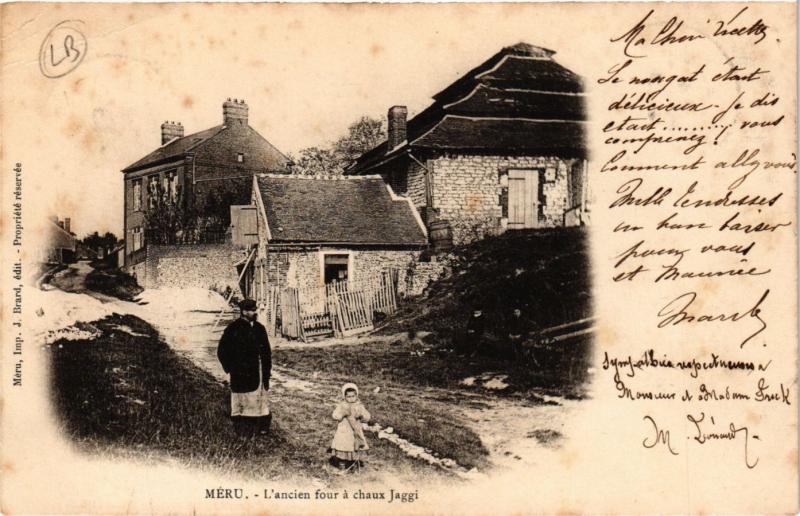 LB
Ma Chère
Le nougat était
délicieux. Je dis
était ......... vous
comprenez!
Comment allez vous.
Mille tendresses
un bon baiser
pour vous
et Maurice
Marck
respectueuses à
Monsieur et à Madame
M. Léonard
Méru, Imp. J. Brard, édit. - Propriété réservée
MÉRU. - L'ancien four à chaux Jaggi